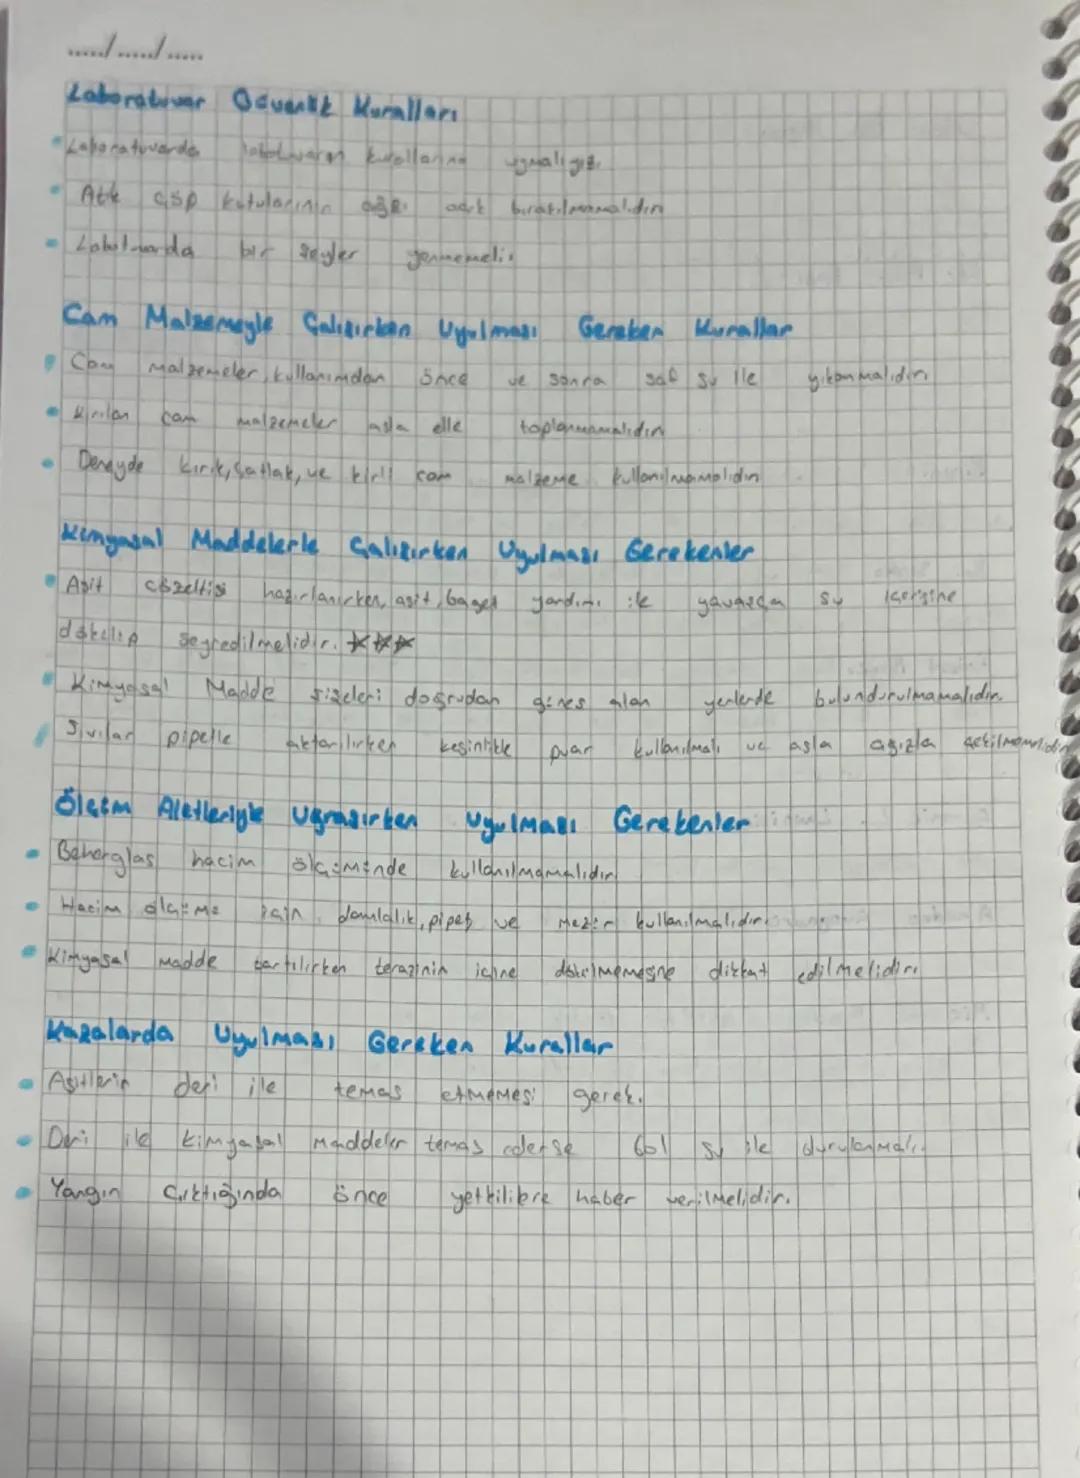 ...../...../.....
Laboratuvar Güvenlik Kuralları
Laboratuvarda kurallarına uymalıyız.
Atık çöp kutularının ağzı açık bırakılmamalıdır
bir şeyler yenmemeli.
Cam Malzemeyle Çalışırken Uyulması Gereken Kurallar
Cam malzemeler, kullanımdan önce ve sonra saf su ile yıkanmalıdır.
Kırılan cam malzemeler asla elle toplanmamalıdır.
Deneyde kırık, çatlak, ve kirli cam malzeme kullanılmamalıdır
Kimyasal Maddelerle Çalışırken Uyulması Gerekenler
Asit çözeltisi hazırlanırken, asit, baget yardımı ile yavaşça su içerisine
dökülüp seyredilmelidir. ***
Kimyasal Madde şişeleri doğrudan güneş alan yerlerde bulundurulmamalıdır.
Sıvılar pipetle aktarılırken kesinlikle puar kullanılmalı ve asla ağızla çekilmemelidir
Ölçüm Aletleriyle Uğraşırken Uyulması Gerekenler
Beherglas hacim ölçümünde kullanılmamalıdır
Hacim ölçümü için damlalık, pipet ve mezür kullanılmalıdır.
Kimyasal Madde tartılırken terazinin içine dökülmemesine dikkat edilmelidir.
Kazalarda Uyulması Gereken Kurallar
Asitlerin deri ile temas etmemesi gerek.
Deri ile kimyasal maddeler temas ederse bol su ile durulanmalı.
Yangın Çıktığında önce yetkililere haber verilmelidir.